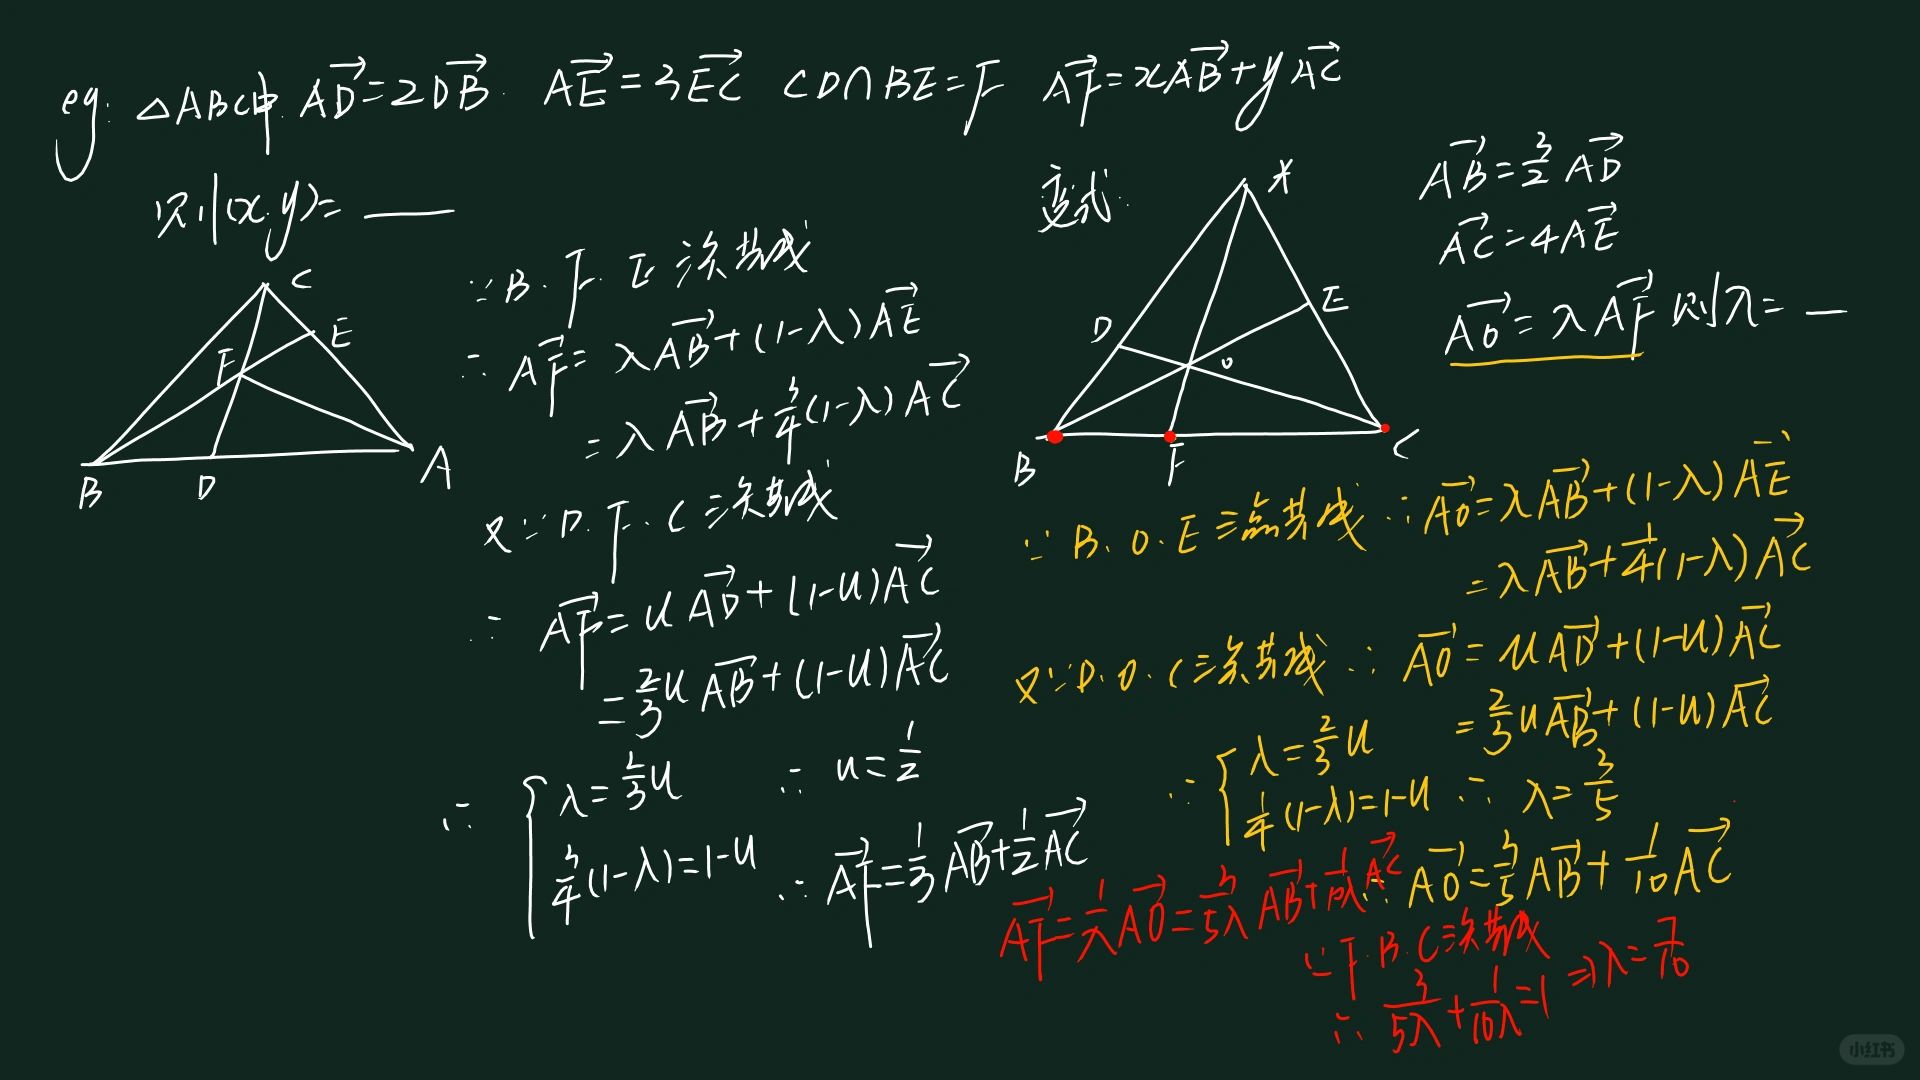 eg: △ABC中. AD→=2DB→. AE→=3EC→ CD∩BE=F AF→=xAB→+yAC→
则(x.y)= ___
C
E
F
B D A
∵B.F.E三点共线
∴AF→=λAB→+(1-λ)AE→
=λAB→+3/4(1-λ)AC→
又∵D.F.C三点共线
∴AF→=uAD→+(1-u)AC→
=2/3uAB→+(1-u)AC→
∴{λ=2/3u
3/4(1-λ)=1-u
∴u=1/2
∴AF→=1/3AB→+1/2AC→
变式.
A
D E
O
B F C
AB→=3/2AD→
AC→=4AE→
AO→=λAF→则λ=__
∵B.O.E三点共线∴AO→=λAB→+(1-λ)AE→
=λAB→+1/4(1-λ)AC→
又∵D.O.C三点共线∴AO→=uAD→+(1-u)AC→
=2/3uAB→+(1-u)AC→
∴{λ=2/3u
1/4(1-λ)=1-u ∴λ=3/5
∴AO→=3/5AB→+1/10AC→
AF→=1/λAO→=3/5λAB→+1/10λAC→
∵F.B.C三点共线
∴3/5λ+1/10λ=1⇒λ=7/10
小红书